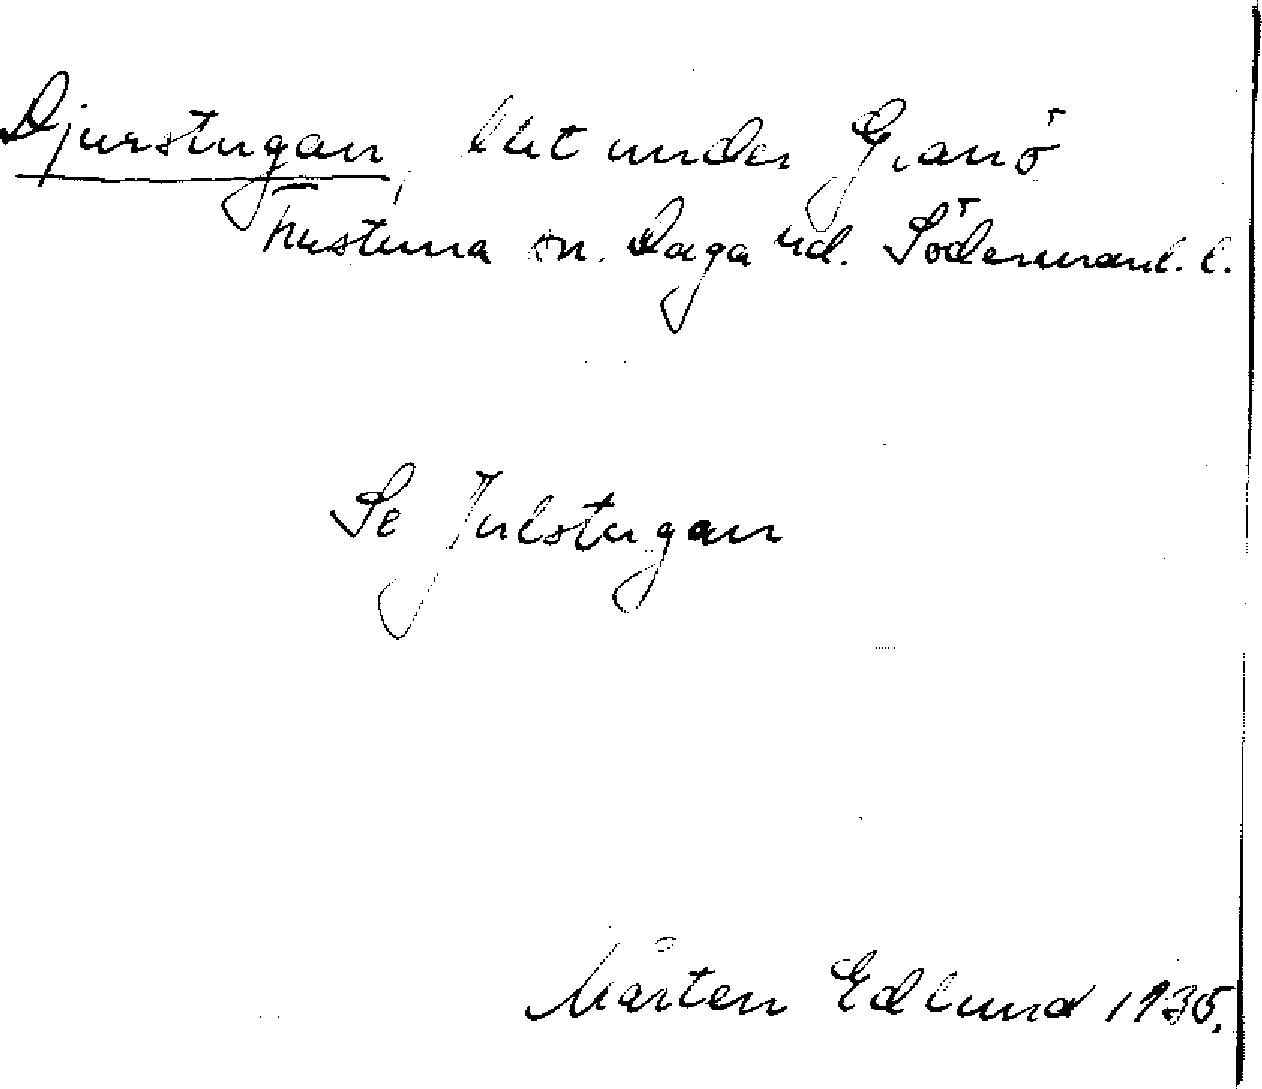 Djurstugan, lht under Granö
Frustuna sn. Daga hd. Södermanl. l.
Se Julstugan
Mårten Edlund 1935.